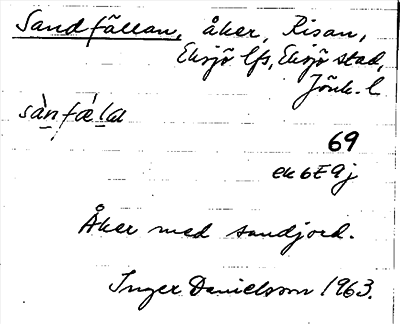 Sandfällan, åker, Risan,
Eksjö lfs, Eksjö stad,
Jönk. l
sàn fæ̀ lal
69
ek 6E9j
Åker med sandjord.
Inger Danielsson 1963.